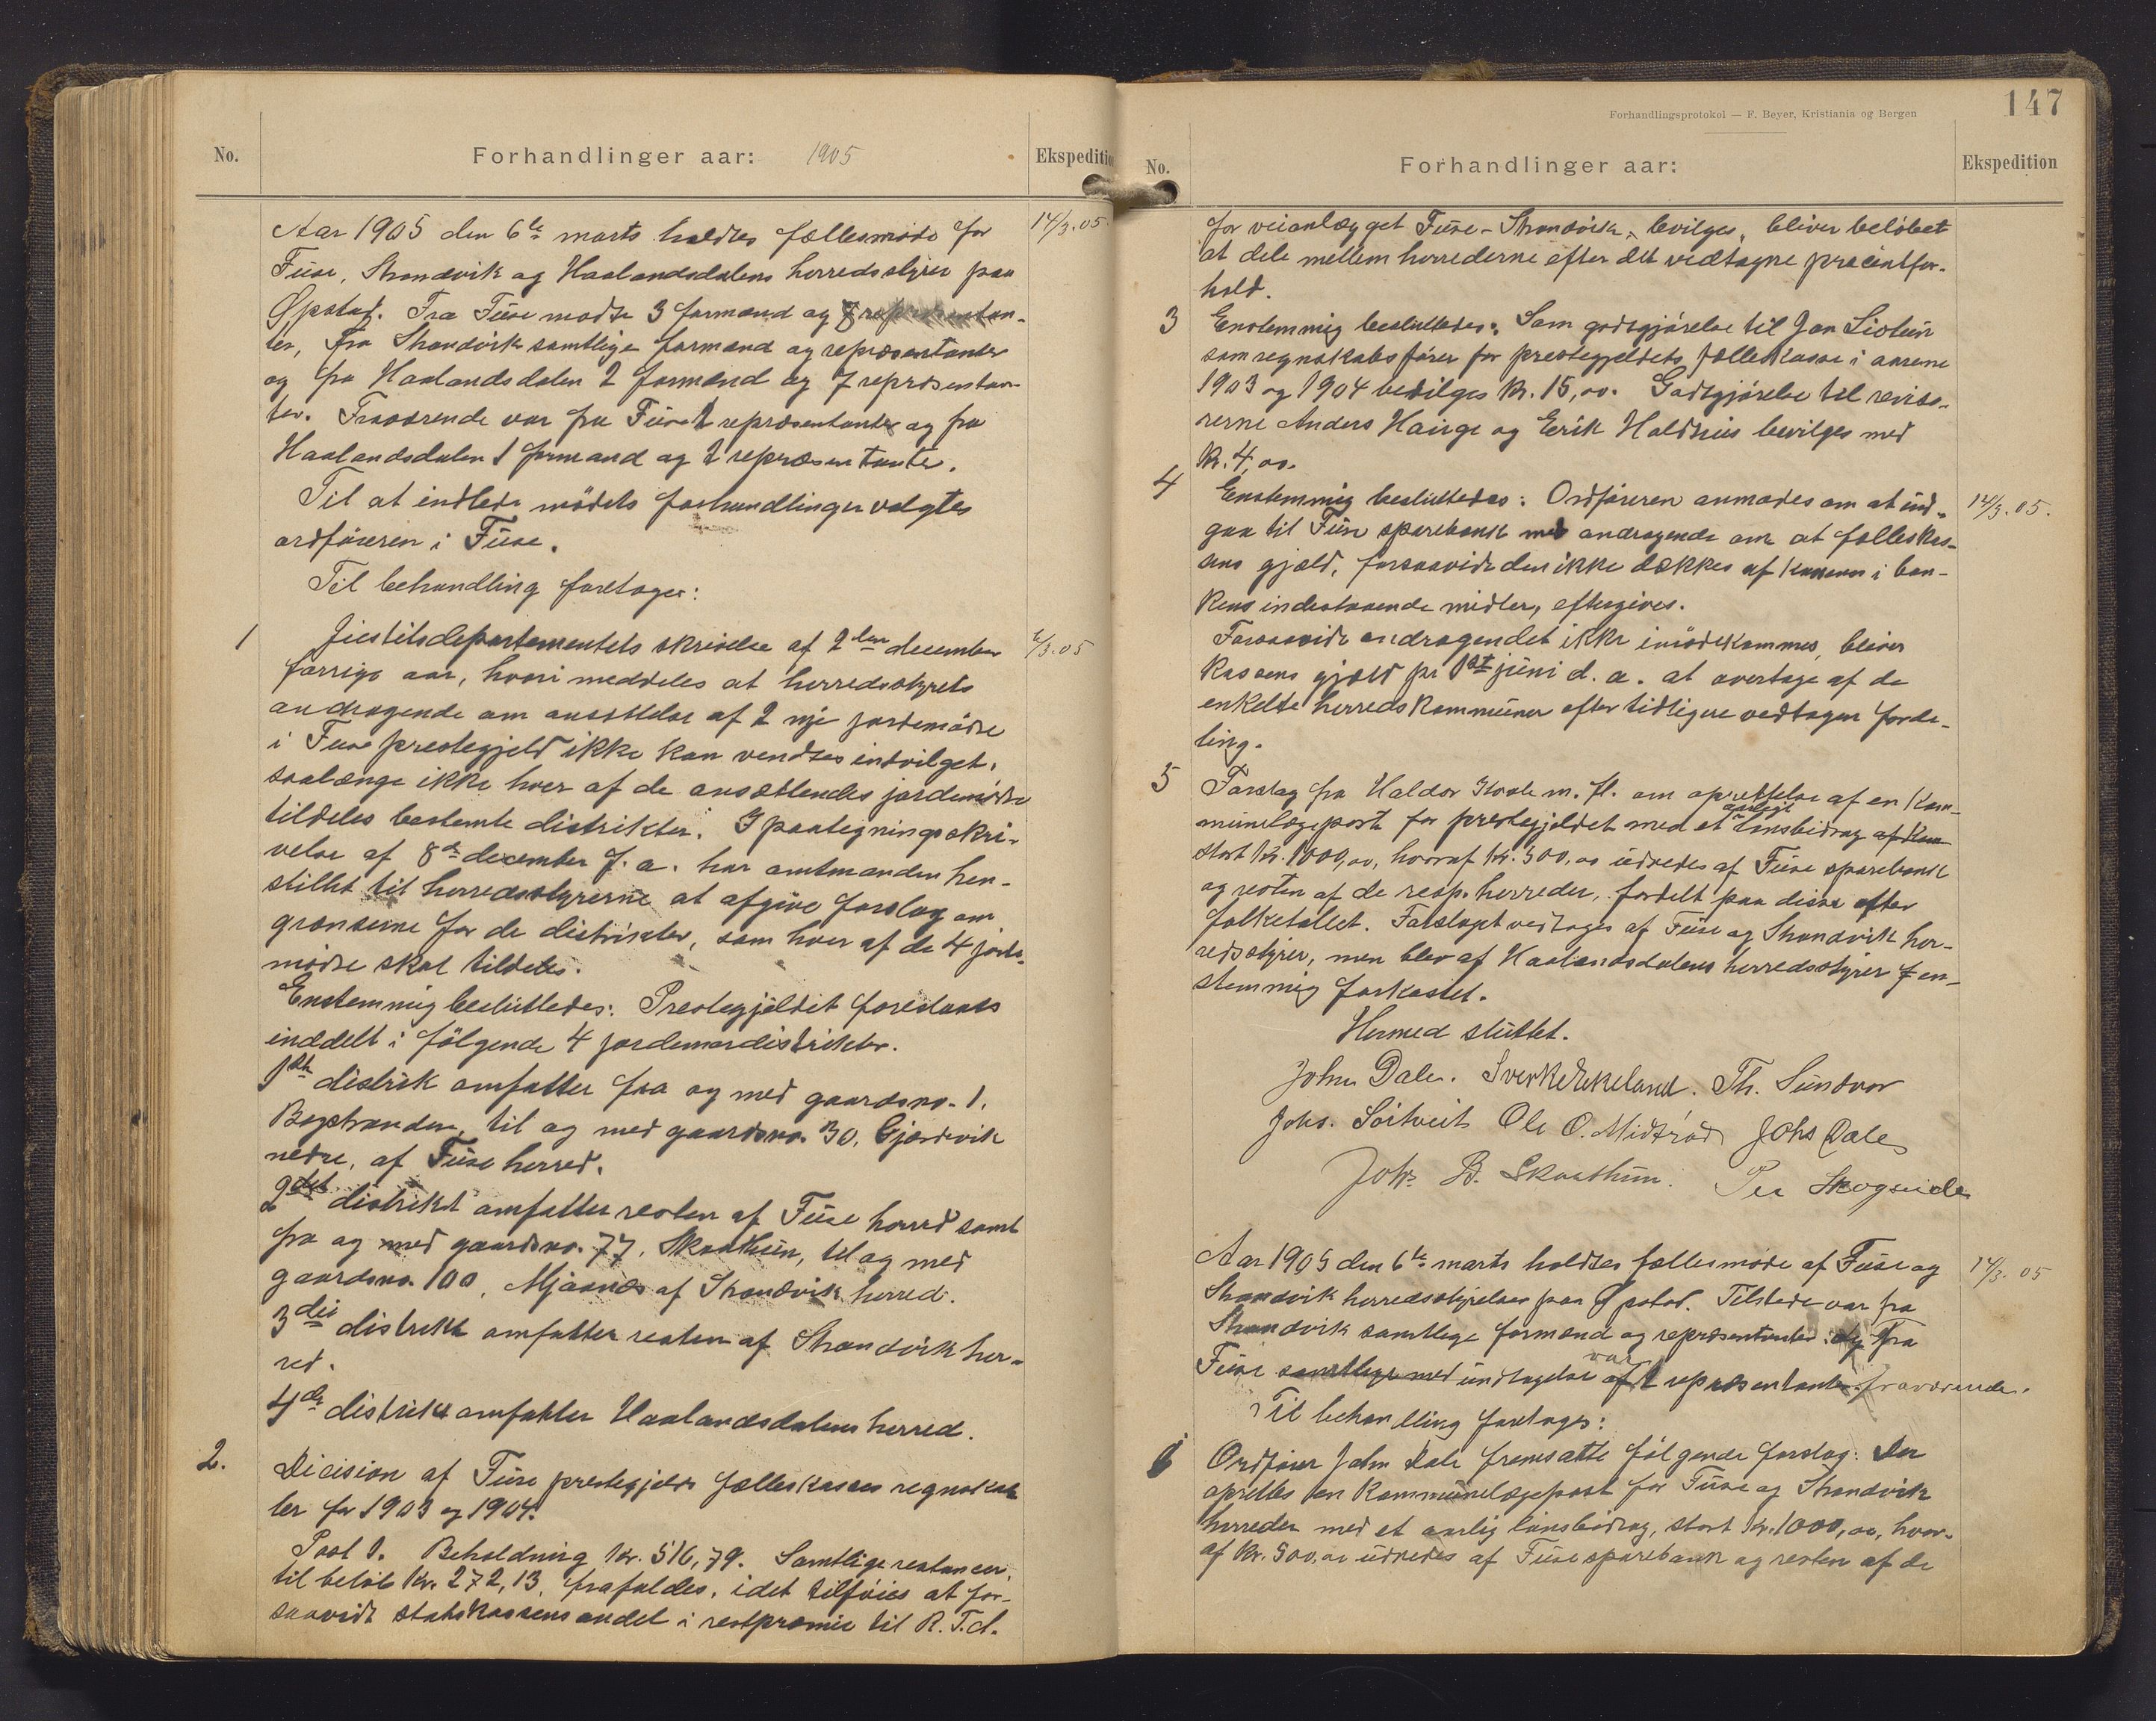 No.
Forhandlinger aar: 1905
Ekspeditio
Aar 1905 den 6te marts holdtes fællesmøde for
14/3.05.
Fuse, Strandvik og Haalandsdalens herredsstyrer paa
Øpstad. Fra Fuse mødte 3 formænd og 7 repræsentan-
ter, fra Strandvik samtlige formænd og repræsentanter
og fra Haalandsdalen 2 formænd og 7 repræsentan-
ter. Fraværende var fra Fuse 2 repræsentanter og fra
Haalandsdalen 1 formand og 2 repræsentanter.
Til at indlede mødets forhandlinger valgtes
ordføreren i Fuse.
Til behandling foretages:
1 Justitsdepartementets skrivelse af 2den december
/3.05
forrige aar, hvori meddeles at herredsstyrets
andragende om ansættelse af 2 nye jordemødre
i Fuse prestegjeld ikke kan ventes indvilget,
saalænge ikke hver af de ansættendes jordemødre
tildeles bestemte distrikter. I paategningsskri-
velse af 8de december f. a. har amtmanden hen-
stillet til herredsstyrerne at afgive forslag om
grænserne for de distrikter, som hver af de 4 jorde-
mødre skal tildeles.
Enstemmig besluttedes: Prestegjeldet foreslaaes
inddelt i følgende 4 jordemordistrikter.
1ste distrik omfatter fra og med gaardsno. 1,
Bogstranden, til og med gaardsno. 30, Gjærdevik
nedre, af Fuse herred.
2det distrikt omfatter resten af Fuse herred samt
fra og med gaardsno. 77, Skaathun, til og med
gaardsno. 100, Mjaanes af Strandvik herred.
3die distrikt omfatter resten af Strandvik her-
red.
4de distrikt omfatter Haalandsdalens herred.
2. Dicision af Fuse prestegjelds fælleskasses regnskab
ler for 1903 og 1904.
Post 1. Beholdning kr. 516,79. Samtlige restancer,
til beløb kr. 272,13, frafaldes, idet tilføies at for-
saavidt statskassens andel i restpræmie til R. T. d.
147
Forhandlingsprotokol — F. Beyer, Kristiania og Bergen
No.
Forhandlinger aar:
Ekspedition
for veianlægget Fuse-Strandvik, bevilges, bliver beløbet
at dele mellem herrederne efter det vedtagne procentfor-
hold.
3 Enstemmig besluttedes: Som godtgjørelse til Jon Liotun
som regnskabsfører for prestegjeldets fælleskasse i aarene
1903 og 1904 bevilges kr. 15,00. Godtgjørelse til reviso-
rerne Anders Hauge og Eerik Holdhus bevilges med
kr. 4,00.
4 Enstemmig besluttedes: Ordføreren anmodes om at ind-
14/3.05.
gaa til Fuse sparebank med andragende om at fælleskas-
sens gjæld, forsaavidt den ikke dækkes af kassens i ban-
kens indestaaende midler, eftergives.
Forsaavidt andragendet ikke imødekommes, bliver
kassens gjæld pr 1st juni d. a. at overtage af de
enkelte herredskommuner efter tidligere vedtagen forde-
ling.
5 Forslag fra Haldor m. fl. om oprettelse af en kom-
munelægepost for prestegjeldet med et aarligt lønsbidrag af kom
stort kr. 1000,00, hvoraf kr. 500,00 udredes af Fuse sparebank
og resten af de resp. herreder, fordelt paa disse efter
folketallet. Forslaget vedtages af Fuse og Strandvik her-
redsstyrer, men blev af Haalandsdalens herredsstyrer en-
stemmig forkastet.
Hermed sluttet.
John Dale. Sverke Ekeland. Th. Sundvor
Johs. Søitveit Ole O. Midtrød Johs Dale
Johs B. Skaathun. Per Skogseide
Aar 1905 den 6te marts holdtes fællesmøde af Fuse og
14/3. 05
Strandvik herredsstyrelser paa Øpstad. Tilstede var fra
Strandvik samtlige formænd og repræsentanter. og Fra
Fuse samtlige med undtagelse af var 2 repræsentanter fraværende.
Til behandling foretages:
6 Ordfører John Dale fremsatte følgende forslag: Der
oprettes en kommunelægepost for Fuse og Strandvik
herreder med et aarlig lønsbidrag, stort kr. 1000,00, hvor-
af kr. 500,00 udredes af Fuse sparebank og resten af de